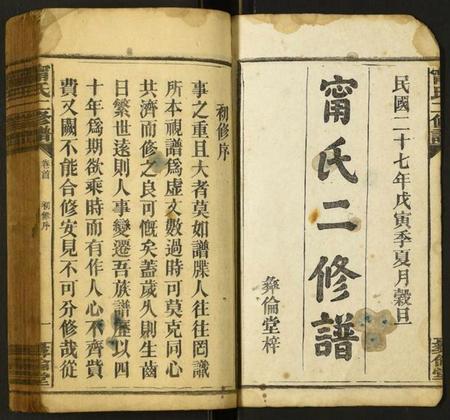 民國二十七年戊寅季夏月榖旦
甯氏二修譜
彜倫堂梓
甯氏二修譜
彜倫堂
初修序
事之重且大者莫如譜牒人往往罔識
所本視譜爲虛文數過時可莫克同心
共濟而修之良可慨矣蓋歲久則生齒
日繁世遠則人事變遷吾族譜歷以四
十年爲期欲乘時而有作人心不齊貲
費又闕不能合修安見不可分修哉從
甯氏二修譜
卷首
初修序
一
彜倫堂